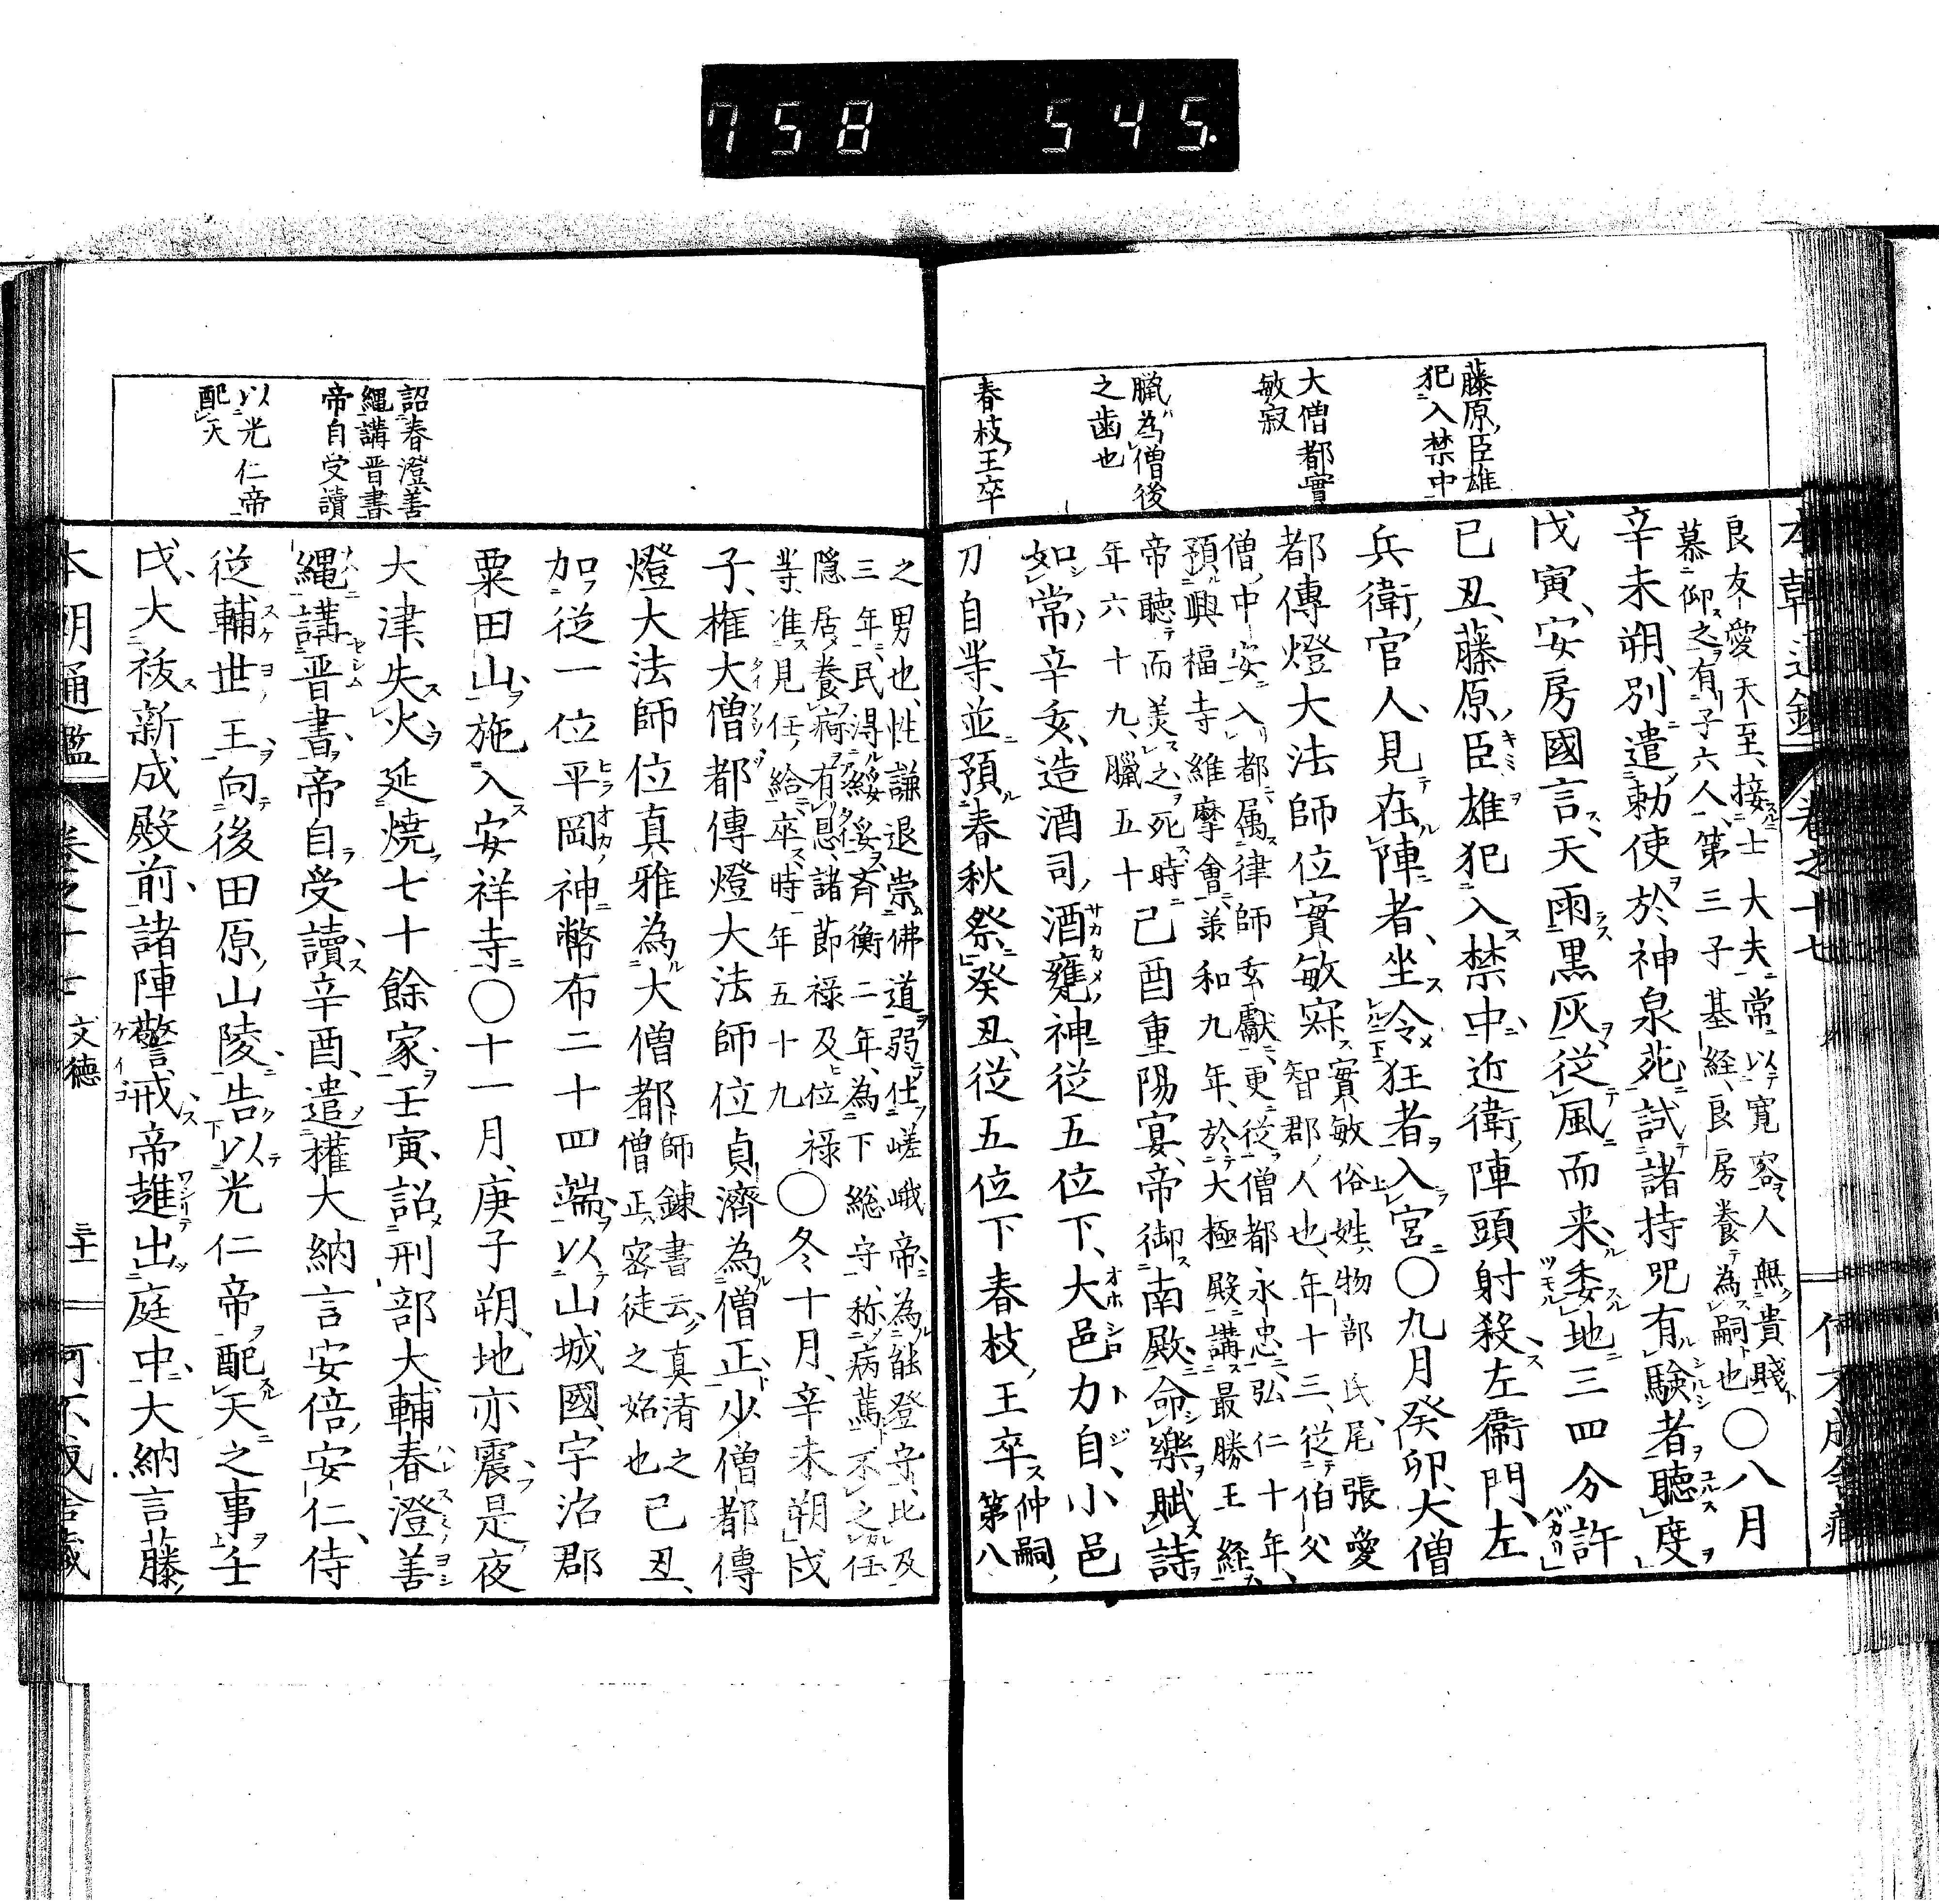 758 545.
藤原臣雄
犯入禁中
大僧都實
敏寂
臘為僧後
之歯也
春枝王卒
本朝通鑑 卷之十七
良友愛天至接士大夫常以寛容人無貴賤
慕仰之有子六人第三子基經良房養為嗣也〇八月
辛未朔別遣勅使於神泉苑試諸持咒有験者聽度
戊寅安房國言天雨黒灰從風而来委地三四分許
已丑藤原臣雄犯入禁中近衛陣頭射殺左衛門左
兵衛官人見在陣者坐令狂者入宮〇九月癸卯大僧
都傳燈大法師位實敏寂實敏俗姓物部氏尾張愛
智郡人也年十三從伯父
僧中安入都属律師玄叡更從僧都永忠弘仁十年
預興福寺維摩會兼和九年於大極殿講最勝王經
帝聽而美之死時
年六十九臘五十
己酉重陽宴帝御南殿命樂賦詩
如常辛亥造酒司酒甕神從五位下大邑刀自小邑
刀自等並預春秋祭癸丑從五位下春枝王卒仲嗣
第八
詔春澄善
繩講晋書
帝自受讀
以光仁帝
配天
之男也性謙退崇佛道弱仕嵯峨帝為能登守比及
三年民得綏斉衡二年為下総守称病篤不之任
隠居養痾有息諸節禄及位禄
等准見任給卒時年五十九
〇冬十月辛未朔戊
子權大僧都傳燈大法師位貞濟為僧正少僧都傳
燈大法師位真雅為大僧都師錬書云真済之
僧正密徒之始也
已丑
加從一位平岡神幣布二十四端以山城國宇治郡
粟田山施入安祥寺〇十一月庚子朔地亦震是夜
大津失火延焼七十餘家壬寅詔刑部大輔春澄善
繩講晋書帝自受讀辛酉遣權大納言安倍安仁侍
從輔世王向後田原山陵告以光仁帝配天之事壬
戌大祓新成殿前諸陣警戒帝趨出庭中大納言藤
本朝通鑑 卷之十七 文德